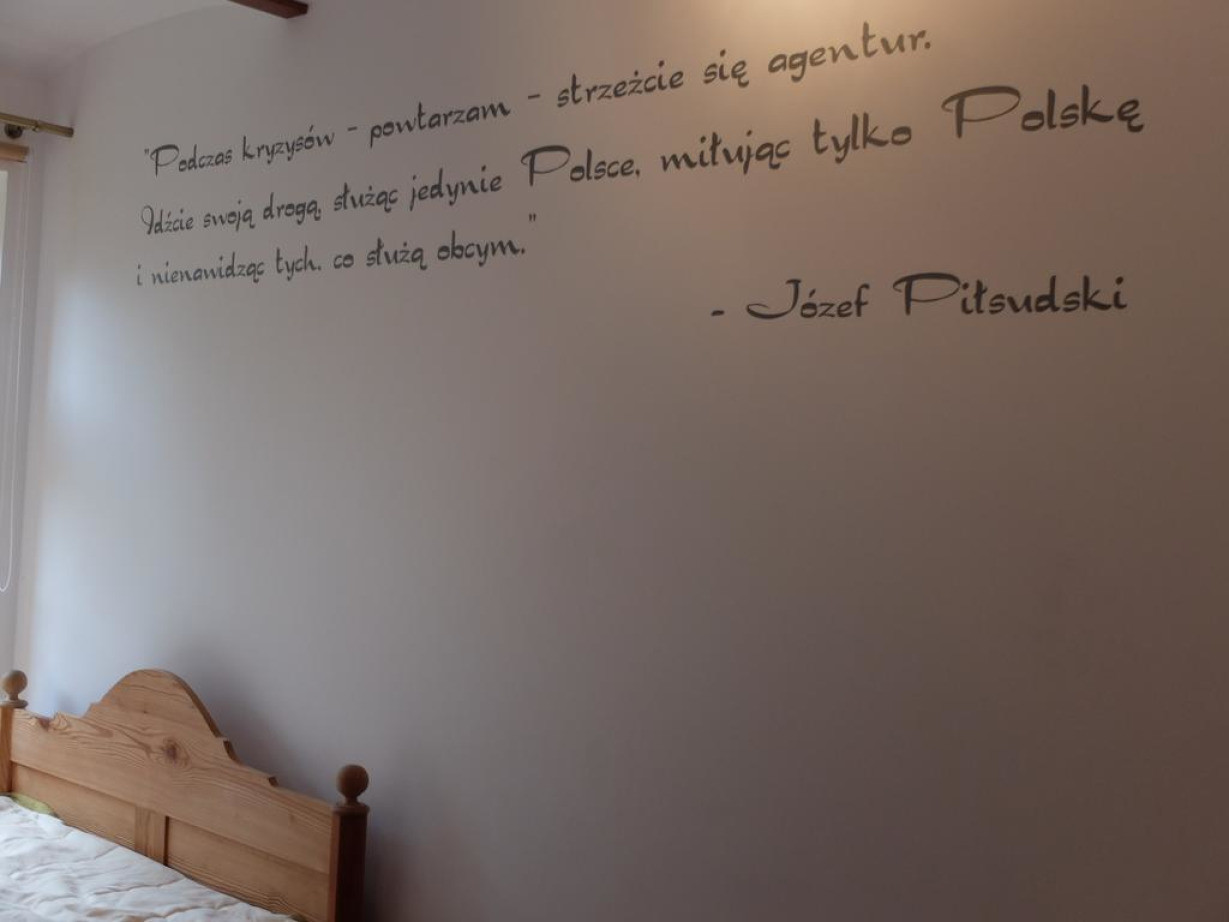 "Podczas kryzysów - powtarzam - strzeżcie się agentur.
Idźcie swoją drogą, służąc jedynie Polsce, miłując tylko Polskę
i nienawidząc tych, co służą obcym."
- Józef Piłsudski